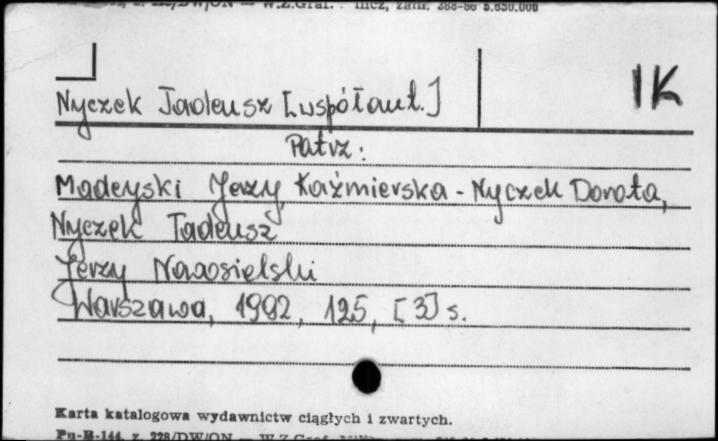 W.Z.Graf. zam. 388-86 5.650.000
1K
Nyczek Tadeusz [współaut.]
Patrz:
Madeyski Jerzy, Kaźmierska-Nyczek Dorota,
Nyczek Tadeusz
Jerzy Nowosielski
Warszawa, 1992, 125, [3] s.
Karta katalogowa wydawnictw ciągłych i zwartych.
Pu-K-144, z. 228/DW/ON — W.Z.Graf.